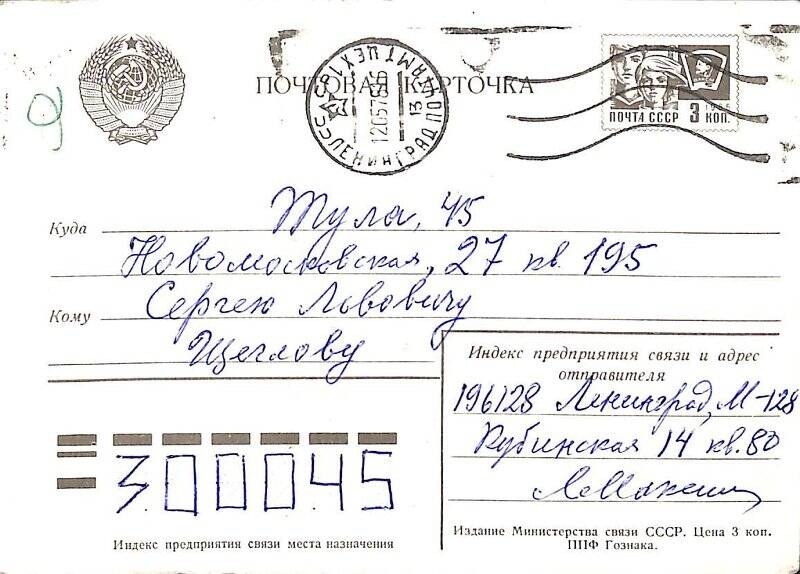 ПОЧТОВАЯ КАРТОЧКА
ЛЕНИНГРАД ПОЧТАМТ ЦЕХ
120575
13
1966
ПОЧТА СССР 3 КОП.
Куда Тула, 45
Новомосковская, 27 кв. 195
Кому Сергею Львовичу
Щеглову
Индекс предприятия связи и адрес
отправителя
196128 Ленинград, М-128
Кубинская 14 кв. 80
300045
Индекс предприятия связи места назначения
Издание Министерства связи СССР. Цена 3 коп.
ППФ Гознака.